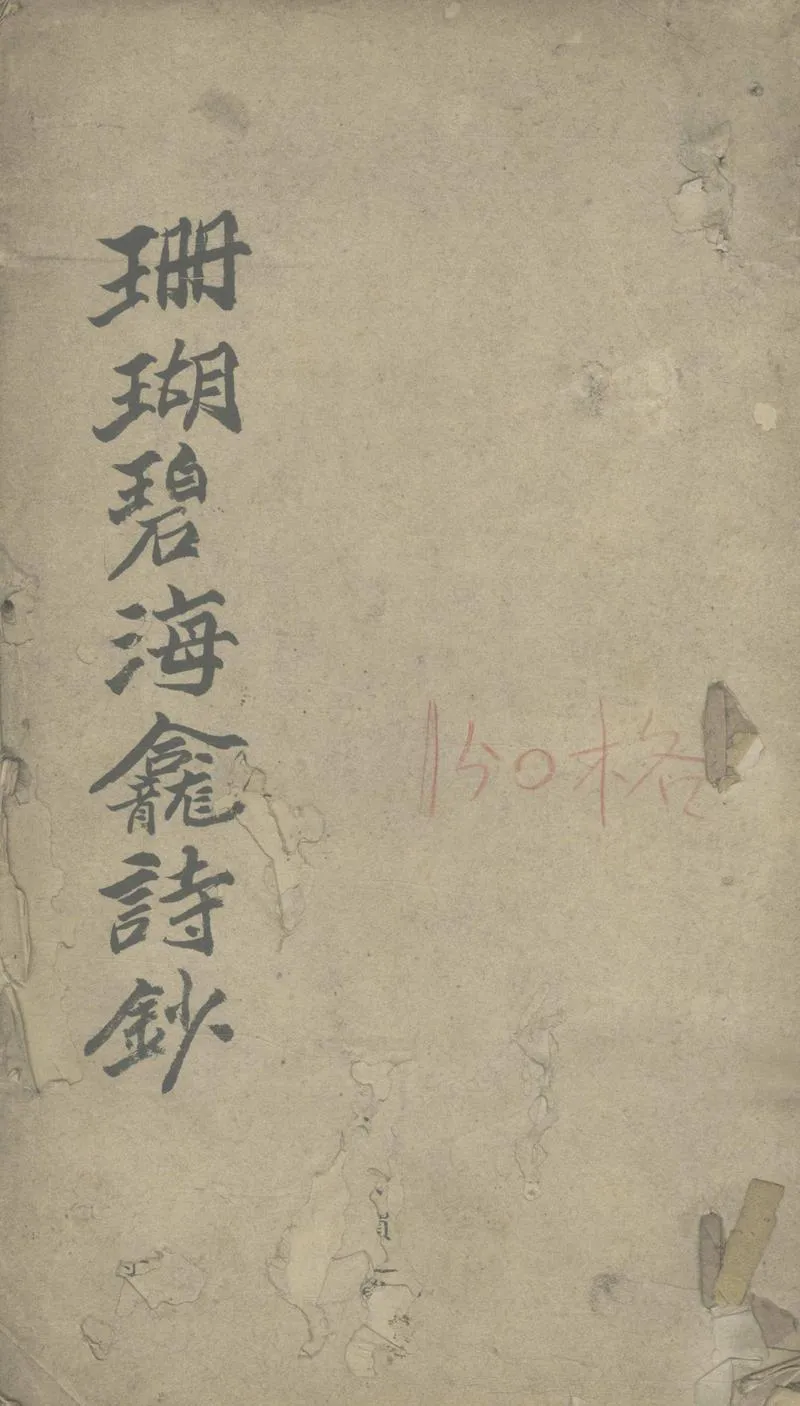 珊瑚碧海龕詩鈔
150格